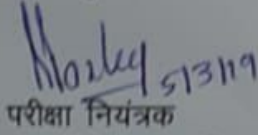 5/3/19
परीक्षा नियंत्रक